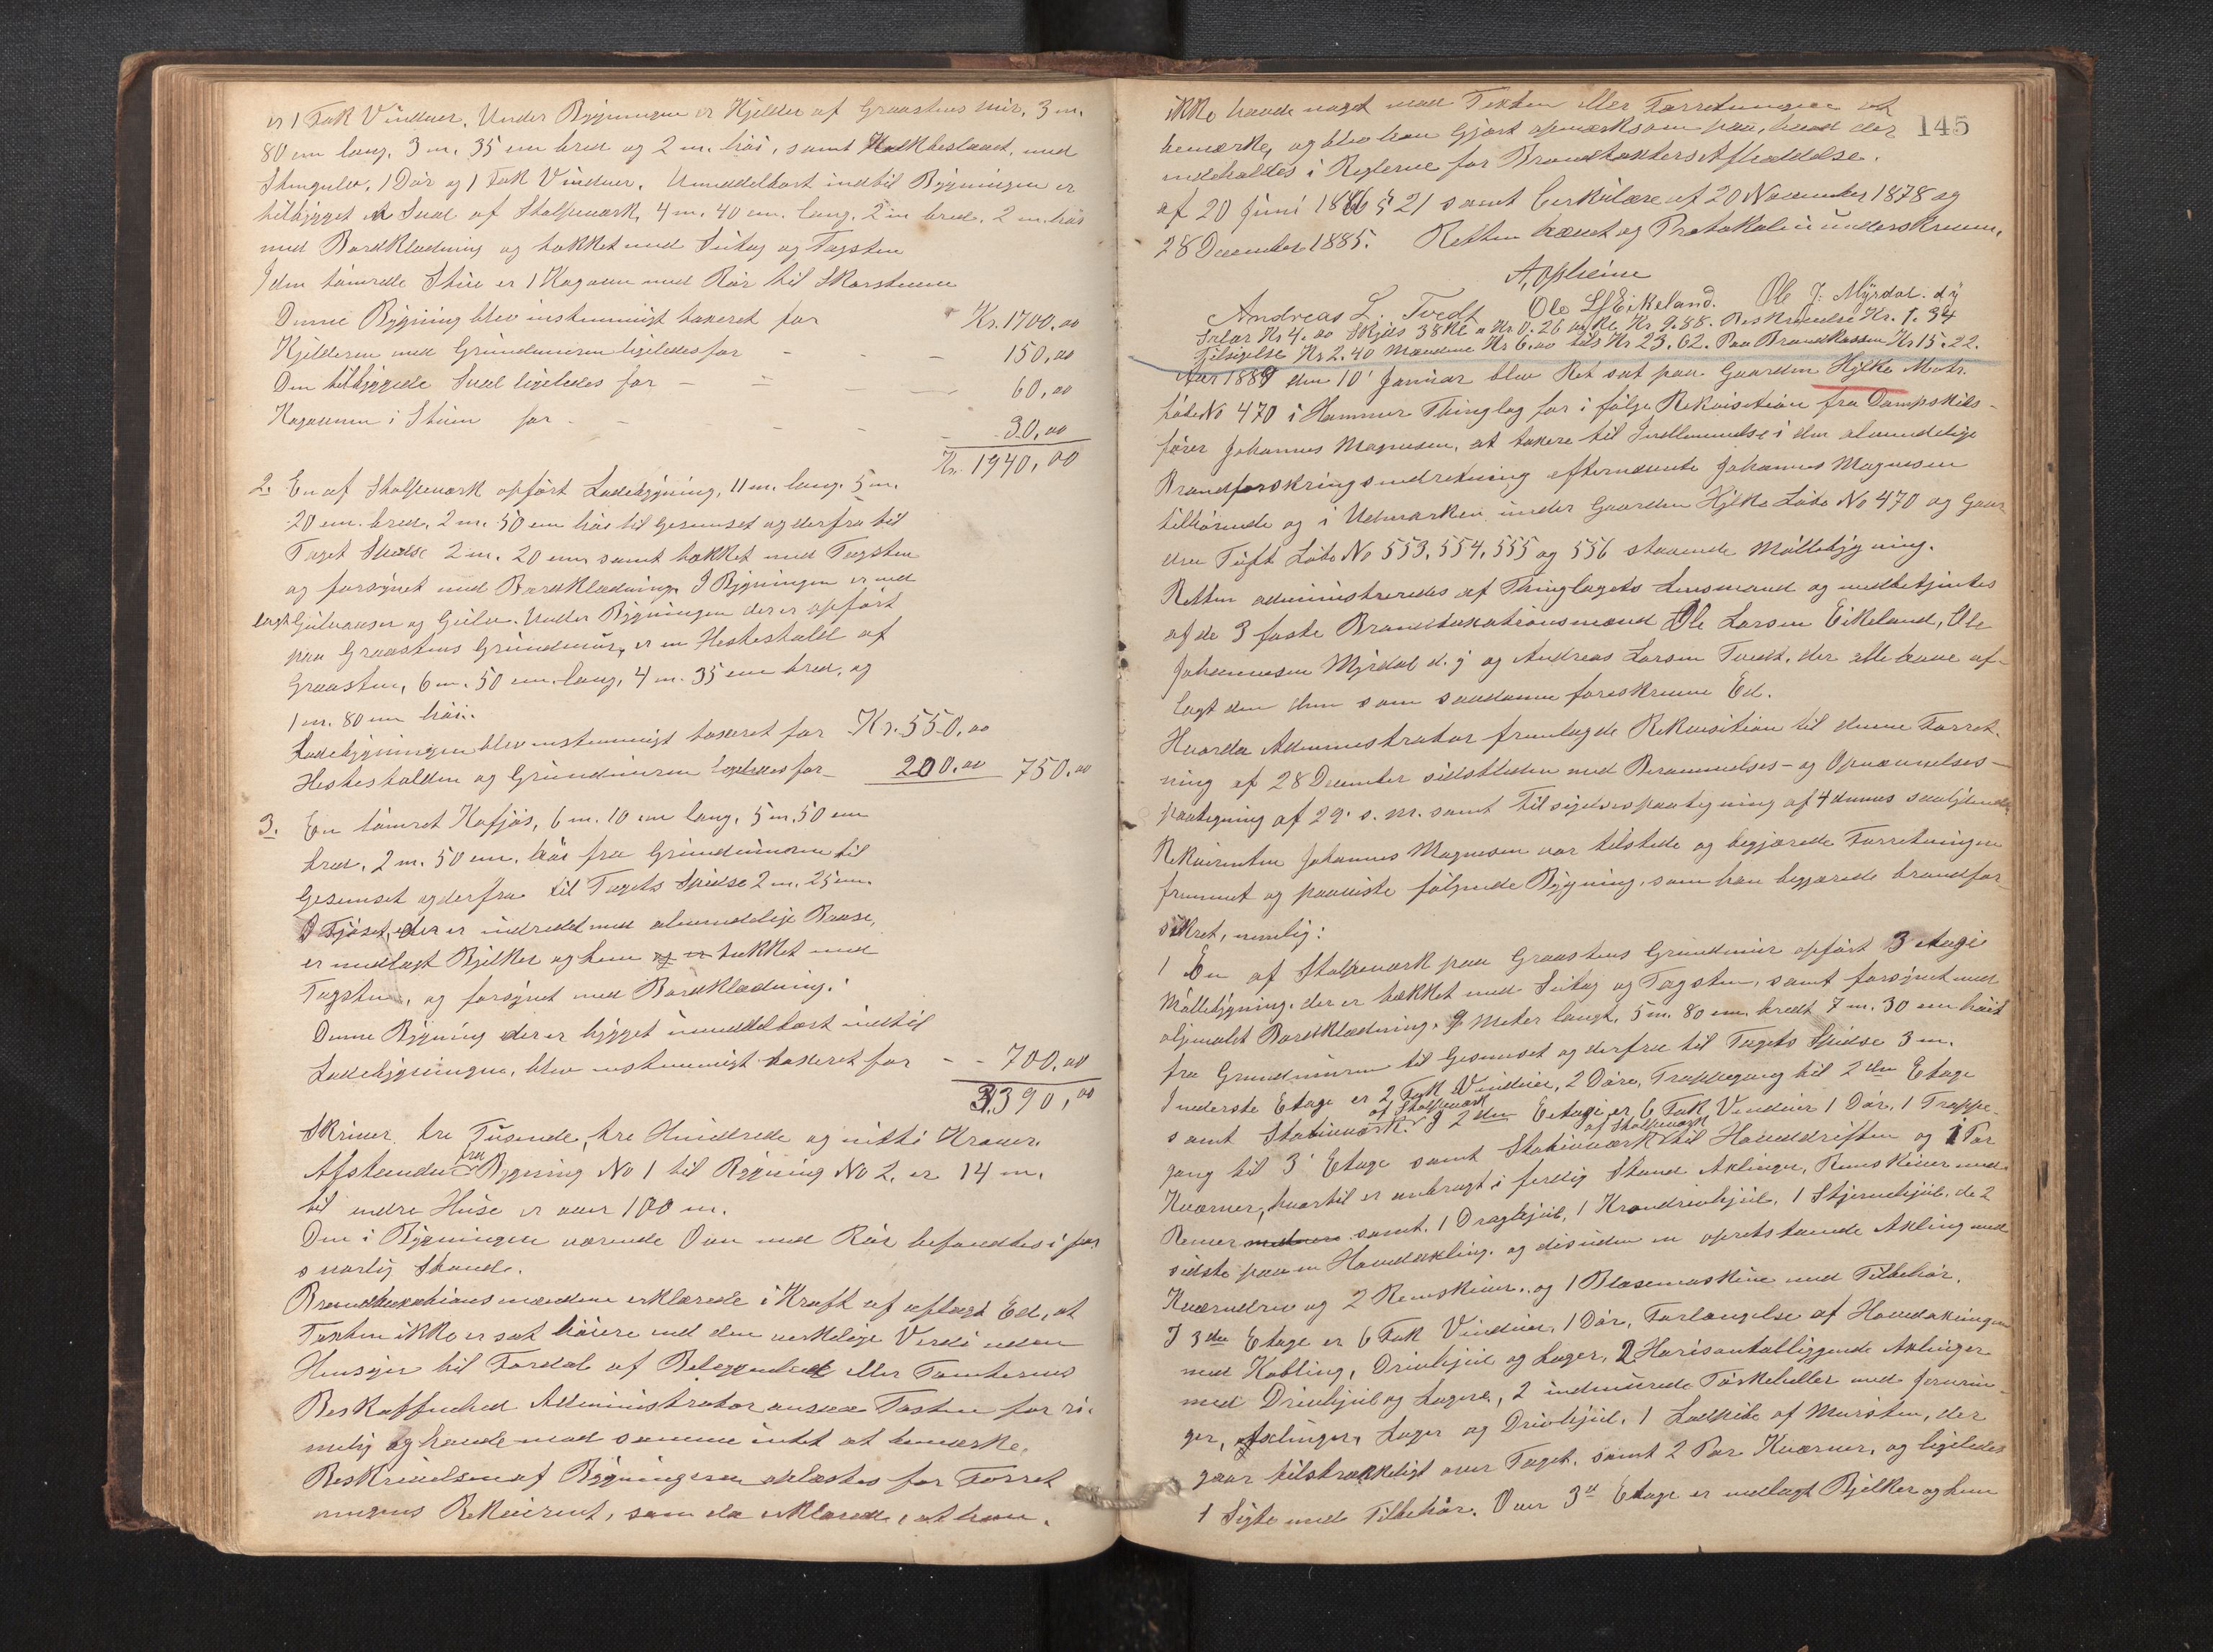 er 1 Fak Vinduer. Under Bygningen er Kjelder af Graastens Mur, 3 m.
80 cm lang, 3 m. 35 cm bred og 2 m. høi, samt Kalkbeslaaet, med
Stengulv, 1 Dør og 1 Fak Vinduer. Umiddelbart indtil Bygningen er
tilbygget en Sval af Stolpeværk, 4 m. 40 cm. lang, 2 m bred, 2 m. høi
med Bordklædning og tækket med Sutag og Tagsten
I den tømrede Stue er 1 Kogovn med Rør til Skorstenen
Denne Bygning blev enstemmigt taxeret for Kr. 1700,00
Kjelderen med Grundmuren ligeledes for - - - 150,00
Den tilbyggede Sval ligeledes for - - - - 60,00
Kogovnen i Stuen for - - - - - 30,00
Kr. 1940,00
2. En af Stolpeværk opført Ladebygning, 11 m. lang, 5 m.
20 cm. bred, 2 m. 50 cm høi til Gesimset og derfra til
Taget Spidse 2 m. 20 cm, samt tækket med Tagsten
og forsynet med Bordklædning. I Bygningen er ned
lagt Gulvaaser og Gulv. Under Bygningen der er opført
paa Graastens Grundmur, er en Hestestald af
Graasten, 6 m. 50 cm. lang, 4 m. 35 cm bred, og
1 m. 80 cm høi.
Ladebygningen blev enstemmigt taxeret for Kr. 550,00
Hestestalden og Grundmuren ligeledes for - 200,00 750,00
3. En tømret Kofjøs, 6 m. 10 cm lang, 5 m. 50 cm
bred, 2 m. 50 cm. høi fra Grundmuren til
Gesimset og derfra til Tagets Spidse 2 m. 25 cm.
I Fjøset, der er indredet med almindelige Baase,
er nedlagt Bjelker og hem og er tækket med
Tagsten, og forsynet med Bordklædning.
Denne Bygning der er bygget umiddelbart indtil
Ladebygningen, blev enstemmigt taxeret for - - 700,00
3390,00
Skriver tre Tusende, tre Hundrede og nitti Kroner.
Afstanden fra Bygning No 1 til Bygning No 2. er 14 m.
til andre Huse er over 100 m.
Den i Bygningen værende Ovn med Rør befandtes i for
svarlig Stand.
Brandtaxationsmændene erklærede i Kraft af aflagt Ed, at
Taxten ikke er sat høiere end den verkelige Verdi uden
Hensyn til Fordel af Beliggenhed eller Tomternes
Beskaffenhed Administrator ansaa Taxten for ri-
melig og havde mod samme intet at bemærke.
Beskrivelsen af Bygningerne oplæstes for Forret
ningens Rekvirent, som da erklærede, at han
ikke havde noget mod Taxten eller Forretningen at
bemærke, og blev han gjort opmærksom paa, hvad der 145
indeholdes i Reglerne for Brandtaxters Afholdelse.
af 20 Juni 1886 § 21 samt Cirkulære af 20 November 1878 og
28 December 1885. Retten hævet og Protokolen underskreven.
A. Opheim
Andreas L. Tvedt Ole L Eikeland. Ole J. Myrdal. d y
Salær Kr 4.00 Skjøs 38 Kl a Kr 0.26 Kr. 9.88. Beskrivelse Kr. 1.34
Tilsigelse Kr 2.40 Mændene Kr 6.00 tils Kr 23.62. Paa Brandkassen Kr 15.22.
Aar 1889 den 10' Januar blev Ret sat paa Gaarden Hylke Matr.
Løbe No 470 i Hammer Thinglag for i følge Rekvisition fra Dampskibs-
fører Johannes Magnesen, at taxere til Indlemmelse i den almindelige
Brandforsikringsindretning efternævnte Johannes Magnesen
tilhørende og i Udmarken under Gaarden Hylke Løbe No 470 og Gaar
den Tuft Løbe No 553, 554, 555 og 556 staaende Møllebygning.
Retten administreredes af Thinglagets Lensmand og medbetjentes
af de 3 faste Brandtaxationsmænd Ole Larsen Eikeland, Ole
Johannesen Myrdal d. y og Andreas Larsen Tvedt, der alle have af-
lagt den dem som saadanne foreskrevne Ed.
Hvorda Administrator fremlagde Rekvisition til denne Forret-
ning af 28 December sidstleden med Berammelses- og Opnævnelses-
paategning af 29. s. m. samt Tilsigelsespaategning af 4 dennes saalydende
Rekvirenten Johannes Magnesen var tilstede og begjærede Forretningen
fremmet og paaviste følgende Bygning, som han begjærede brandfor-
sikret, nemlig:
1 En af Stolpeværk paa Graastens Grundmur opført 3 etages
Møllebygning, der er tækket med Sutag og Tagsten, samt forsynet med
oljemalet Bordklædning, 9 Meter langt, 5 m. 80 cm. bredt 7 m. 30 cm høit
fra Grundmuren til Gesimset og derfra til Tagets Spidse 3 m.
I nederste Etage er 2 Fak Vinduer, 2 Døre, Trappegang til 2den Etage
samt Stativværk af Stolpeværk. I 2den Etage er 6 Fak Vinduer 1 Dør, 1 Trappe-
gang til 3' Etage samt Stativværk af Stolpeværk til Hovddriften og 1 Par
Kværner, hvortil er anbragt i ferdig Stand Axlinger, Remskiver med
Remer samt. 1 Draghjul, 1 Krondrivhjul, 1 Stjernehjul, de 2
sidste paa en Hovdaxling. og desuden en opretstaaende Axling med
Kværndrev og 2 Remskiver. og 1 Blæsemaskine med Tilbehør.
I 3die Etage er 6 Fak Vinduer, 1 Dør, Forlængelse af Hovdaxlingen
med Kobling, Drivhjul og Lager, 2 Horisontalliggende Axlinger
med Drivhjul og Lagere, 2 indmurede Tørkeheller med Jernrin-
ger, Axlinger, Lager og Drivhjul, 1 Ladpibe af Mursten, der
gaar tilstrækkeligt over Taget, samt 2 Par Kværner, og ligeledes
1 Sigte med Tilbehør. Over 3die Etage er nedlagt Bjelker og hem